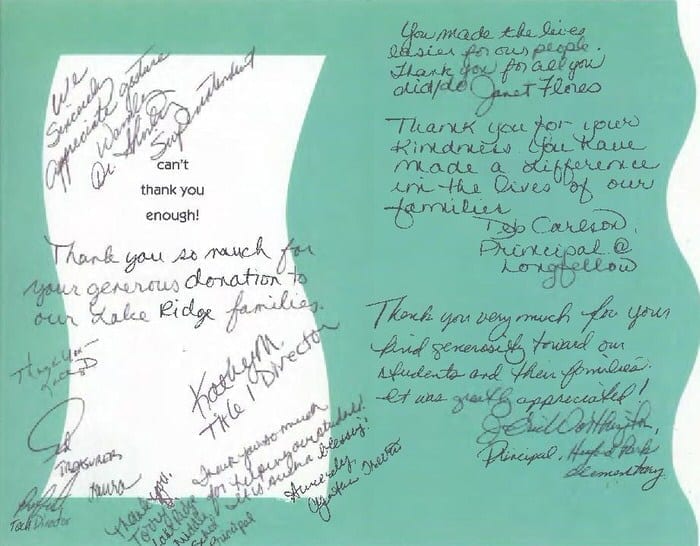 We
Sincerely
appreciate gesture
Dr.
Superintendent
can't
thank you
enough!
Thank you so much for
your generous donation to
our Lake Ridge families.
Kathy M.
Title 1 Director
Thank you
Treasurer
Laura
Tech Director
Thank you so much
for helping our students!
It is such a blessing!
Sincerely,
Thank you,
Lake Ridge
Middle
School
Principal
You made the lives
easier for our people.
Thank you for all you
did/do Janet Flores
Thank you for your
kindness You have
made a difference
in the lives of our
families
Deb Carlson,
Principal @
Longfellow
Thank you very much for your
kind generosity toward our
students and their families.
It was greatly appreciated!
Principal, Hosford Park
Elementary